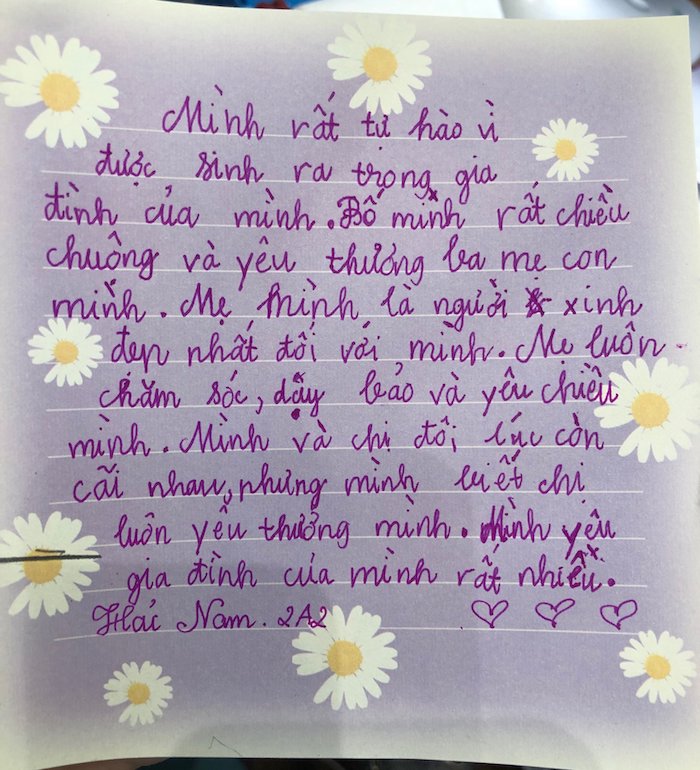 Mình rất tự hào vì
được sinh ra trong gia
đình của mình. Bố mình rất chiều
chuộng và yêu thương ba mẹ con
mình. Mẹ mình là người xinh
đẹp nhất đối với mình. Mẹ luôn
chăm sóc, dậy bảo và yêu chiều
mình. Mình và chị đôi lúc còn
cãi nhau, nhưng mình biết chị
luôn yêu thương mình. Mình yêu
gia đình của mình rất nhiều.
Hải Nam. 2A2